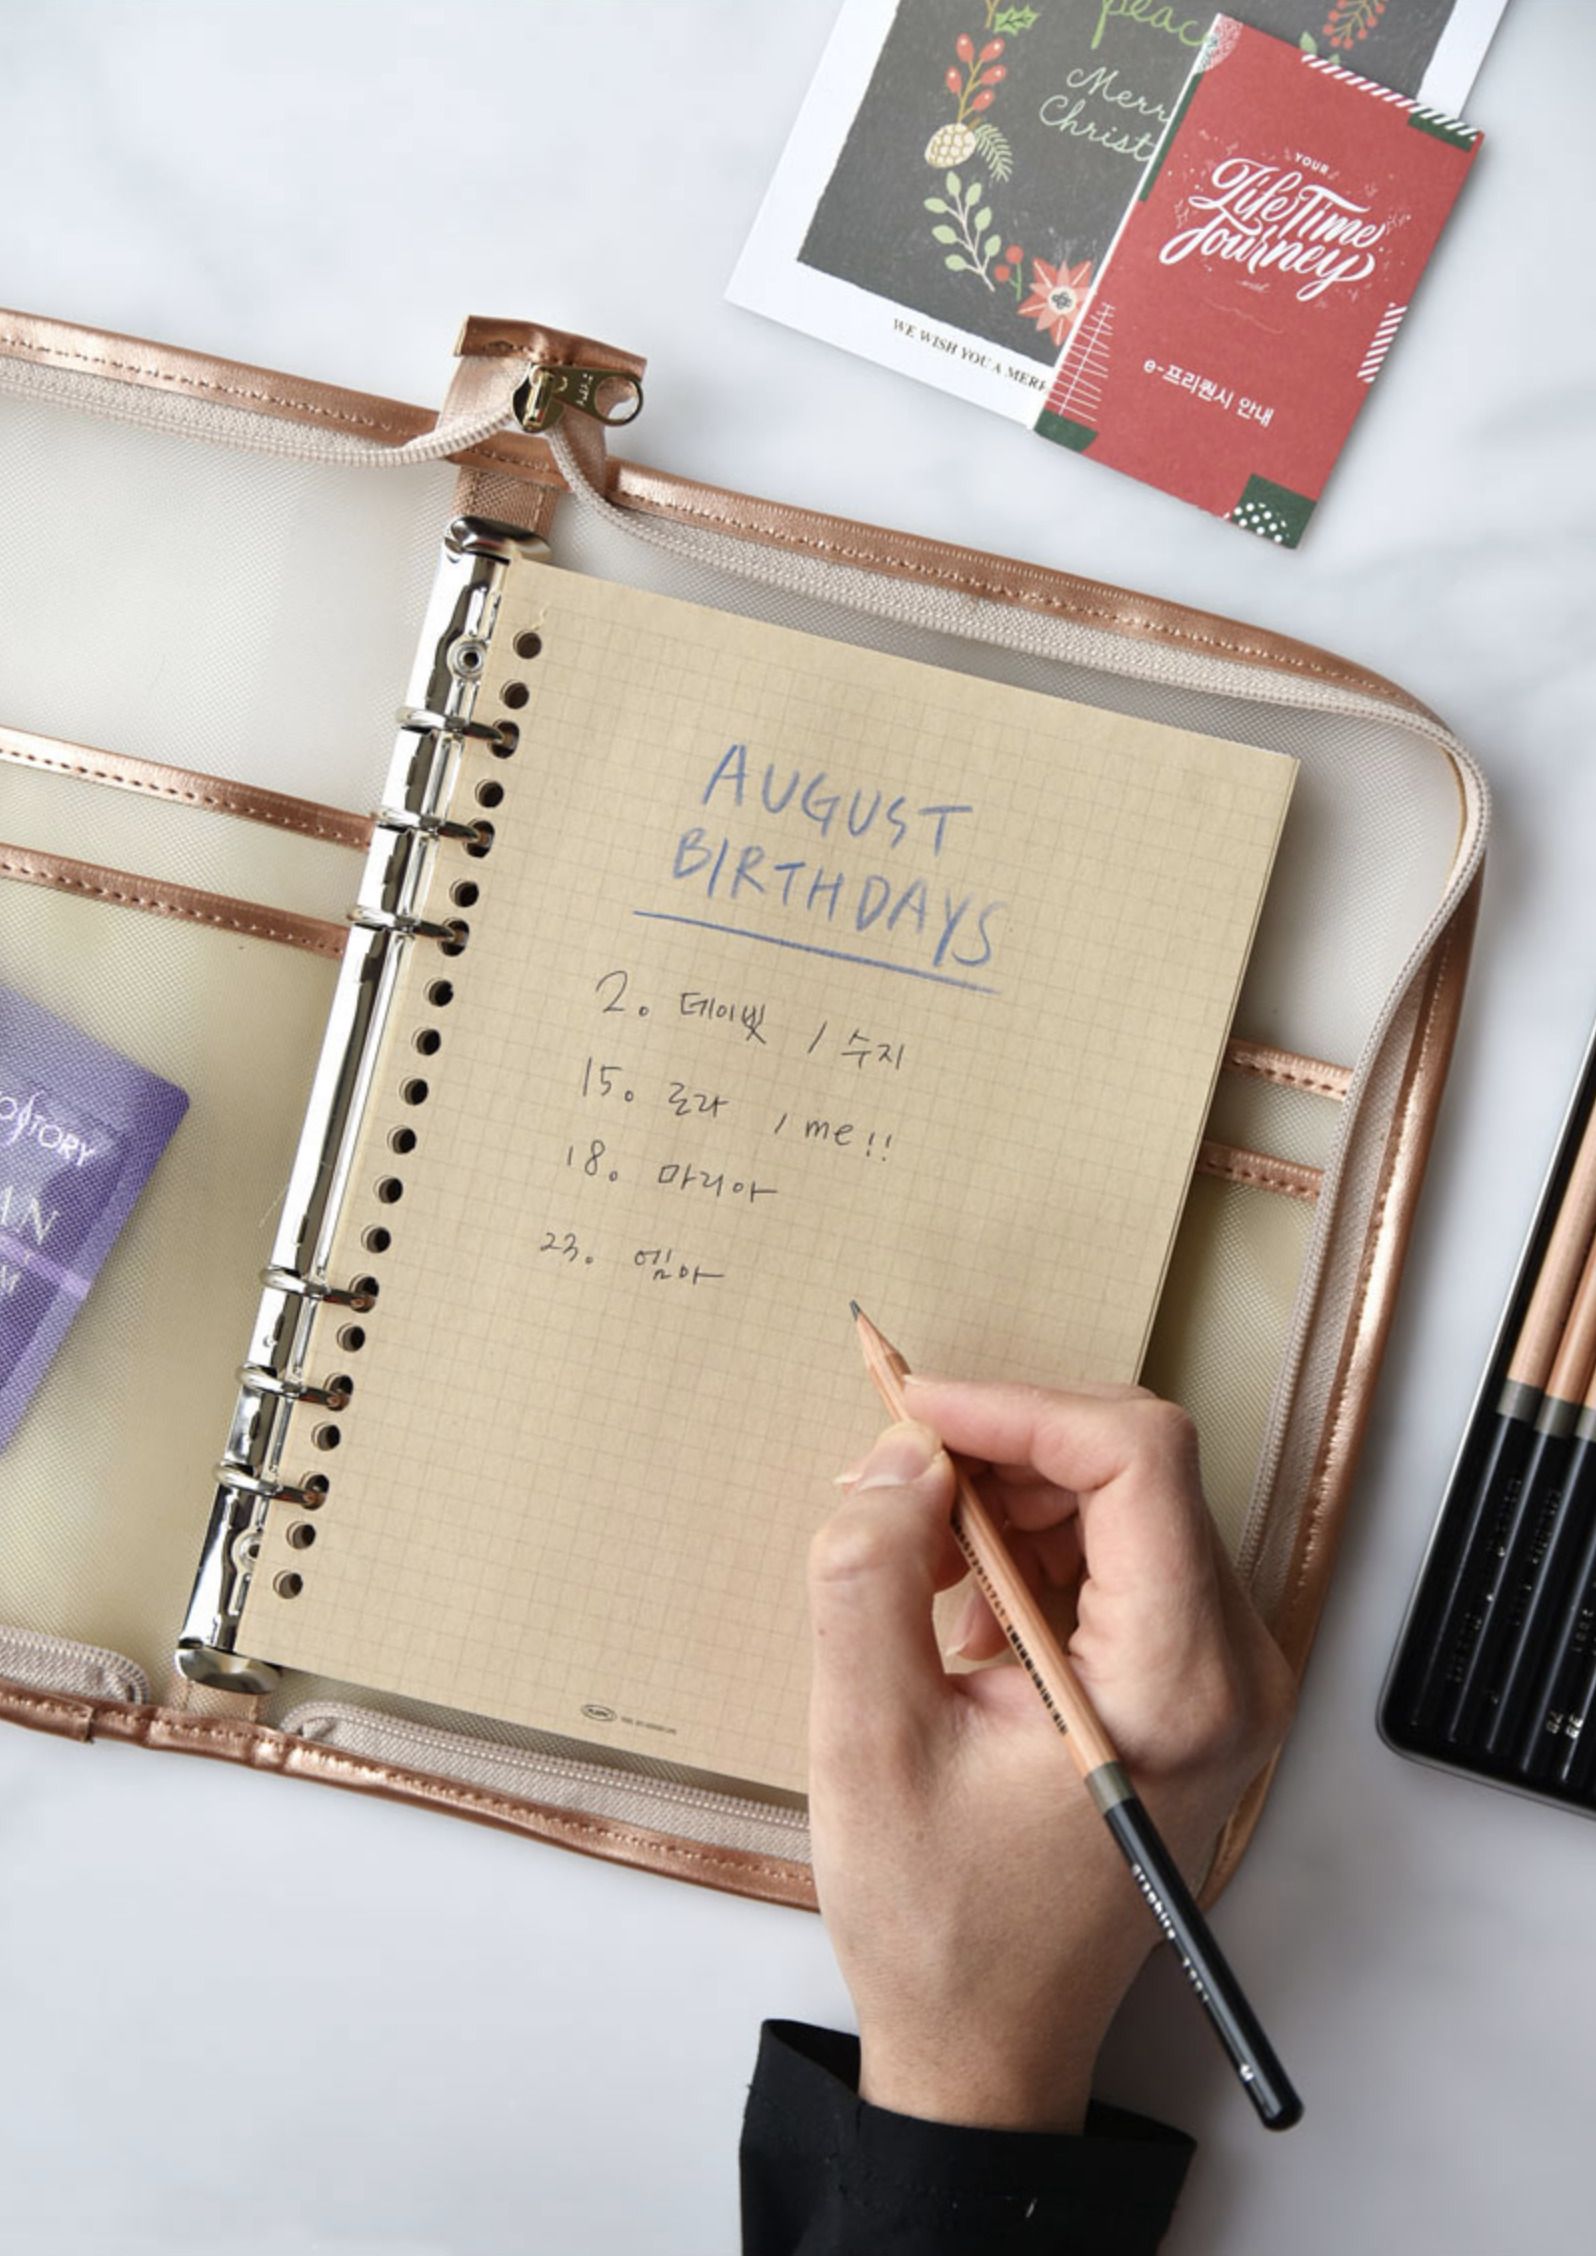 peac
Merr
Christ
WE WISH YOU A MERR
YOUR
LifeTime
Journey
e-프리퀀시 안내
AUGUST
BIRTHDAYS
2. 데이빗 / 수지
15. 로라 / me!!
18. 마리아
23. 엠마
OSTORY
IN
M